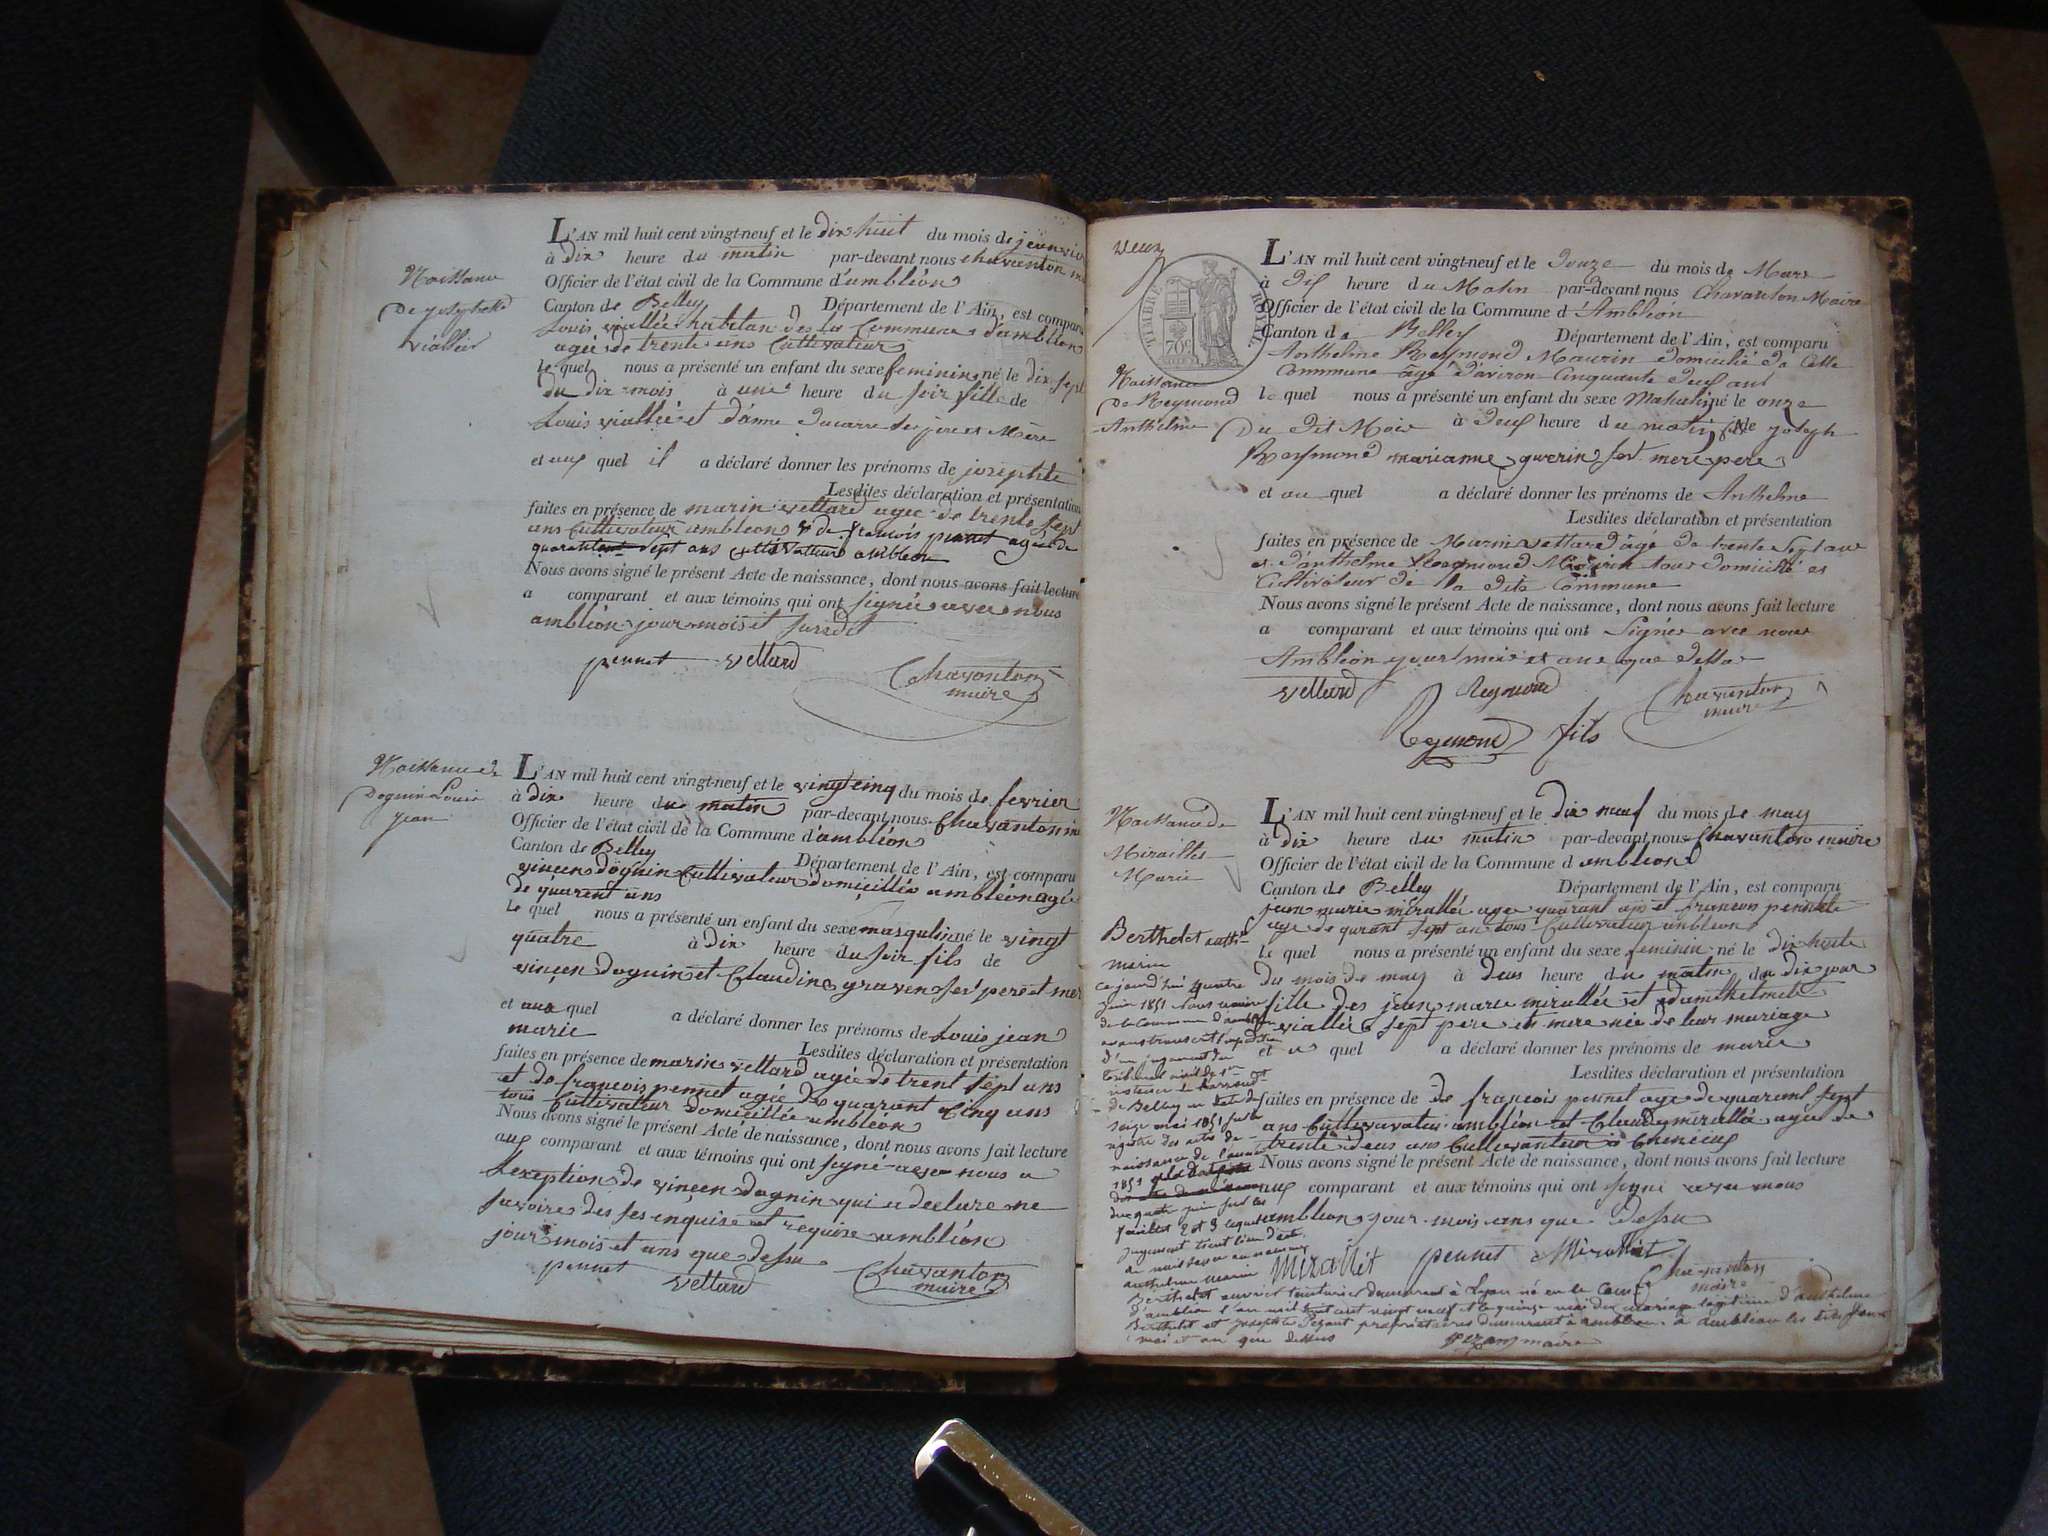 Naissance
De josephte
viallié
L'AN mil huit cent vingt-neuf et le dix huit du mois de
à dix heure du matin par-devant nous chavanton
Officier de l'état civil de la Commune d'ambléon
Canton de Belley Département de l'Ain, est comparu
Louis viallié habitan de la Commune d'ambléon
agée de trente ans Cultivateur
Le quel nous a présenté un enfant du sexe feminin né le dix sept
du dix mois à une heure du soir fille de
Louis viallié et d'anne ducarre ses pere et Mere
et auq quel il a déclaré donner les prénoms de josephte
Lesdites déclaration et présentation
faites en présence de marin vellard agée de trente sept
ans Cultivateur ambleon & de françois pennet agée de
quarante sept ans Cultivateur ambleon
Nous avons signé le présent Acte de naissance, dont nous avons fait lecture
a comparant et aux témoins qui ont signée avec nous
ambléon jour mois et susdit
pennet vellard Chavanton
maire
Naissance de
Doguin Louis
jean
L'AN mil huit cent vingt-neuf et le vingt cinq du mois de fevrier
à dix heure du matin par-devant nous Chavanton
Officier de l'état civil de la Commune d'ambléon
Canton de Belley
Département de l'Ain, est comparu
vincen doguin Cultivateur domicillié ambléon agé
de quarent ans
Le quel nous a présenté un enfant du sexe masqulin né le vingt
quatre à dix heure du soir fils de
vincen doguin et Claudine graven ses pere et mer
et aux quel a déclaré donner les prénoms de Louis jean
marie
Lesdites déclaration et présentation
faites en présence de marin vellard agée de trent sept ans
et de francois pennet agée de quarant Cinq ans
tous Cultivateur domicillée ambléon
Nous avons signé le présent Acte de naissance, dont nous avons fait lecture
auq comparant et aux témoins qui ont signé avec nous a
Lexeption de vincen doguin qui a declare ne
savoire des ses enquise et requise ambléon
jour mois et ans que dessu
pennet vellard Chavanton
maire
TIMBRE ROYAL
70c
Naissance
De Reymond
Anthelme
L'AN mil huit cent vingt-neuf et le Douze du mois de Mars
à Dix heure du Matin par-devant nous Chavanton Maire
Officier de l'état civil de la Commune d'Ambléon
Canton de Belley Département de l'Ain, est comparu
Anthelme Reymond Maurin domicilié da Cette
Commune agé d'aviron Cinquante deux ans
le quel nous a présenté un enfant du sexe né le onze
Du Dit Mois à Deux heure du matin fils de joseph
Reymond marianne guerin ses mere pere
et au quel a déclaré donner les prénoms de Anthelme
Lesdites déclaration et présentation
faites en présence de Marin vellard âgé de trente Sept ans
et d'anthelme Reymond tous domicilié et
Cultivateur de la dite Commune
Nous avons signé le présent Acte de naissance, dont nous avons fait lecture
a comparant et aux témoins qui ont Signés avec nous
Ambléon jour mois et ans que dessus
vellard Reymond Chavanton
maire
Reymond fils
Naissance de
Mirailles
Marie
L'AN mil huit cent vingt-neuf et le dix neuf du mois de may
à dix heure du matin par-devant nous Chavanton maire
Officier de l'état civil de la Commune d'ambleon
Canton de Belley Département de l'Ain, est comparu
jean marie mirallée age quarant ans et francois pennet
age de qurant sept an tous Cultivateur ambleon
le quel nous a présenté un enfant du sexe feminin né le dix huite
du mois de may à deus heure du matin du dix jour
fille des jean marie mirallée et
viallée sept pere et mere née de leur mariage
et a quel a déclaré donner les prénoms de marie
Lesdites déclaration et présentation
faites en présence de de francois pennet age de quarant sept
ans Cultivateur ambléon et Claude mirallée agée de
trente deus ans
Nous avons signé le présent Acte de naissance, dont nous avons fait lecture
auq comparant et aux témoins qui ont signé avec nous
ambleon jour mois ans que dessu
Mirallet pennet Mirallet
Chavanton
maire
Berthelet anth
marin
ce jourd'hui quatre
juin 1851 Nous maire
de la Commune d'ambléon
avons transcrit l'expedition
d'un jugement du
tribunal civil de 1re
instance de
de Belley en date du
seize mai 1851 sur le
registre des actes de
naissance de l'année
1851
du quatre juin
feuillet 2 et 3 lequel
jugement tient lieu d'acte
de naissance au nommé
anthelme marin
Berthelet ouvrier teinturier demeurant à Lyon né en la Comne
d'ambléon l'an mil huit cent vingt neuf et le quinze mai du mariage légitime d'anthelme
Berthelet et josephte Pezant propriétaires demeurant à ambléon. à ambléon les dits jour
mai et an que dessus
maire